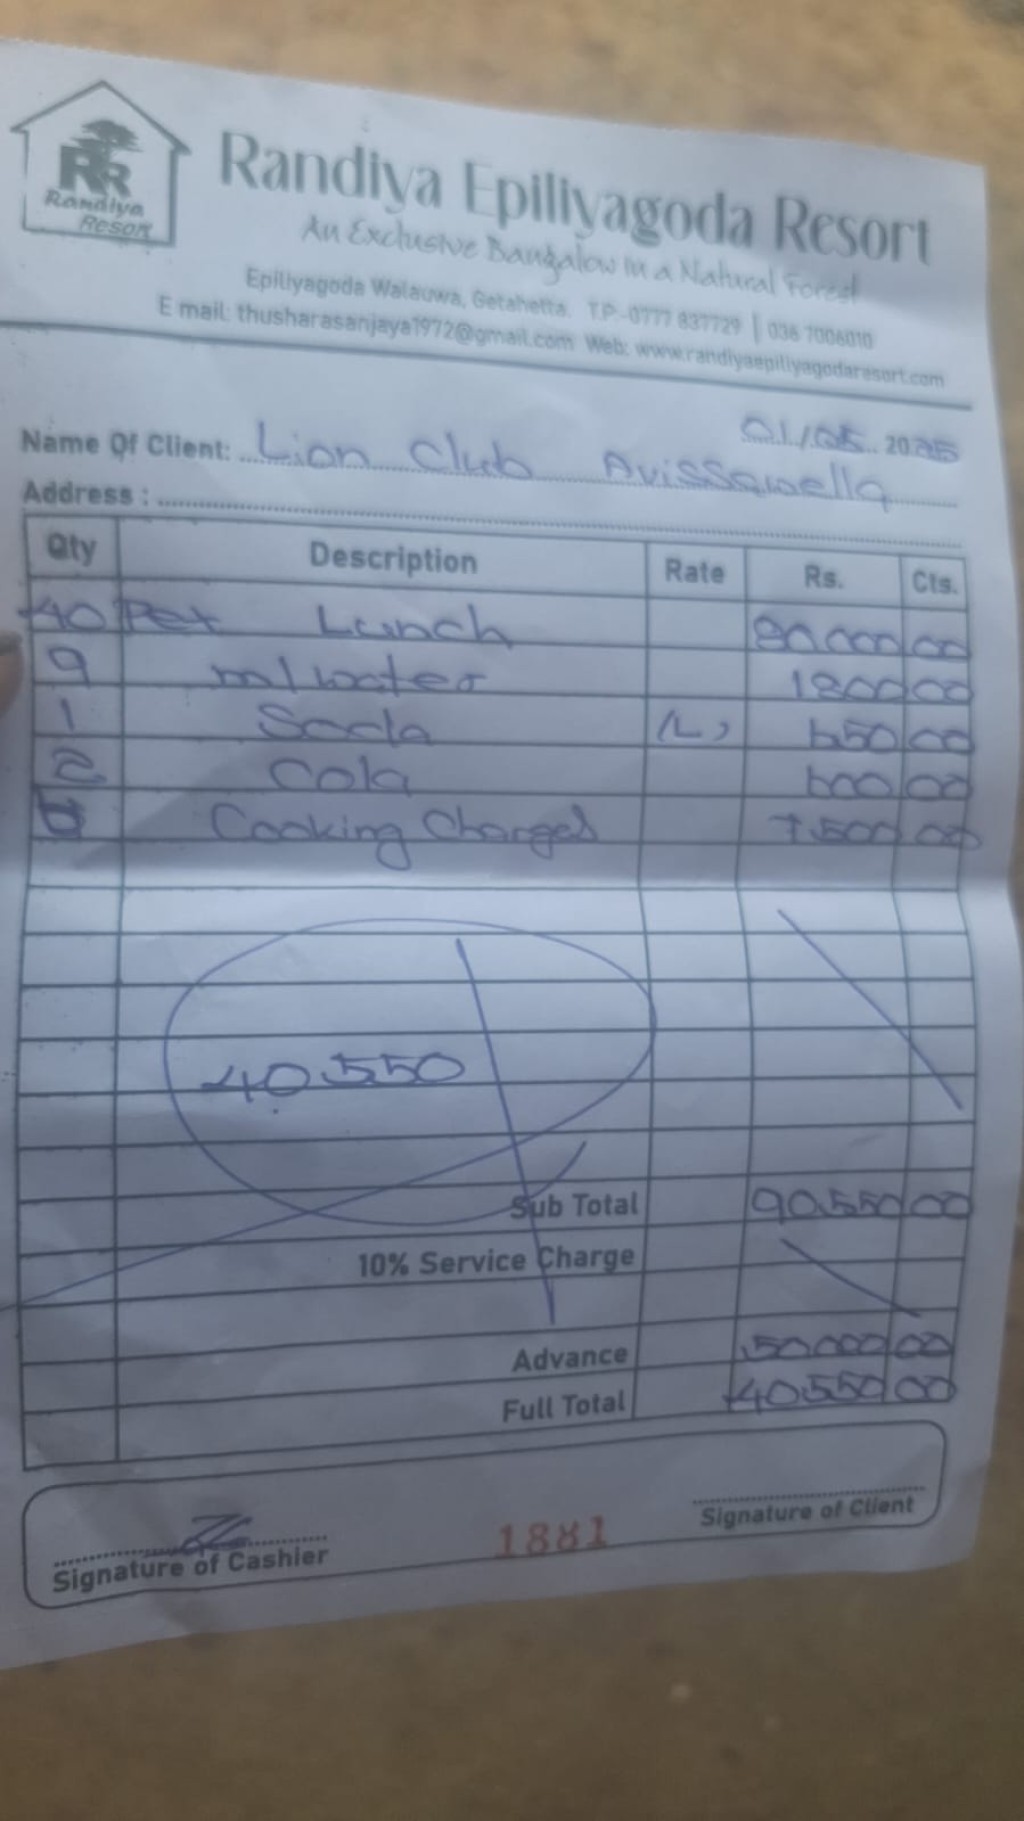 RR
Randiya
Resort
Randiya Epiliyagoda Resort
An Exclusive Bangalow in a Natural Forest
Epiliyagoda Walauwa, Getahetta. T.P:-0777 837729 | 036 7006010
E mail: thusharasanjaya1972@gmail.com Web: www.randiyaepiliyagodaresort.com
01/05 2025
Name Of Client: Lion Club Avissawella
Address :
Qty Description Rate Rs. Cts.
40 Pet Lunch 80.000 00
9 ml water 1800 00
1 Soda (L) 650 00
2 Cola 600 00
Cooking Charges 7.500 00
40.550
Sub Total 90.550 00
10% Service Charge
Advance 50.000 00
Full Total 40.550 00
Signature of Cashier 1881 Signature of Client